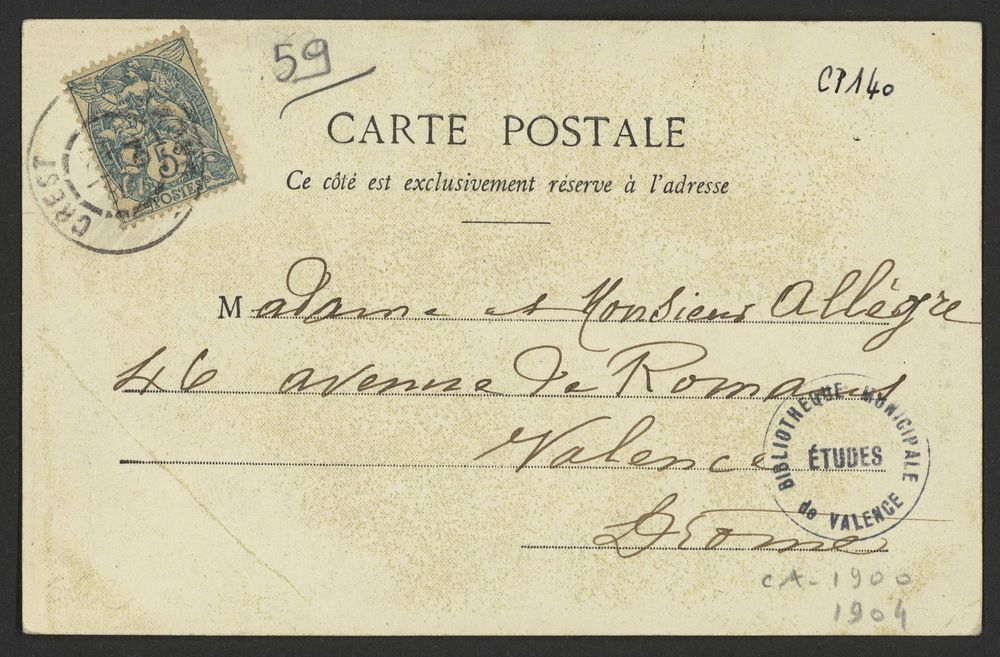 59
CP140
CARTE POSTALE
Ce côté est exclusivement réservé à l'adresse
5
POSTES
CREST
Madame et Monsieur Allègre
46 avenue de Romans
Valence
Drome
BIBLIOTHEQUE MUNICIPALE
ÉTUDES
de VALENCE
CA-1900
1904